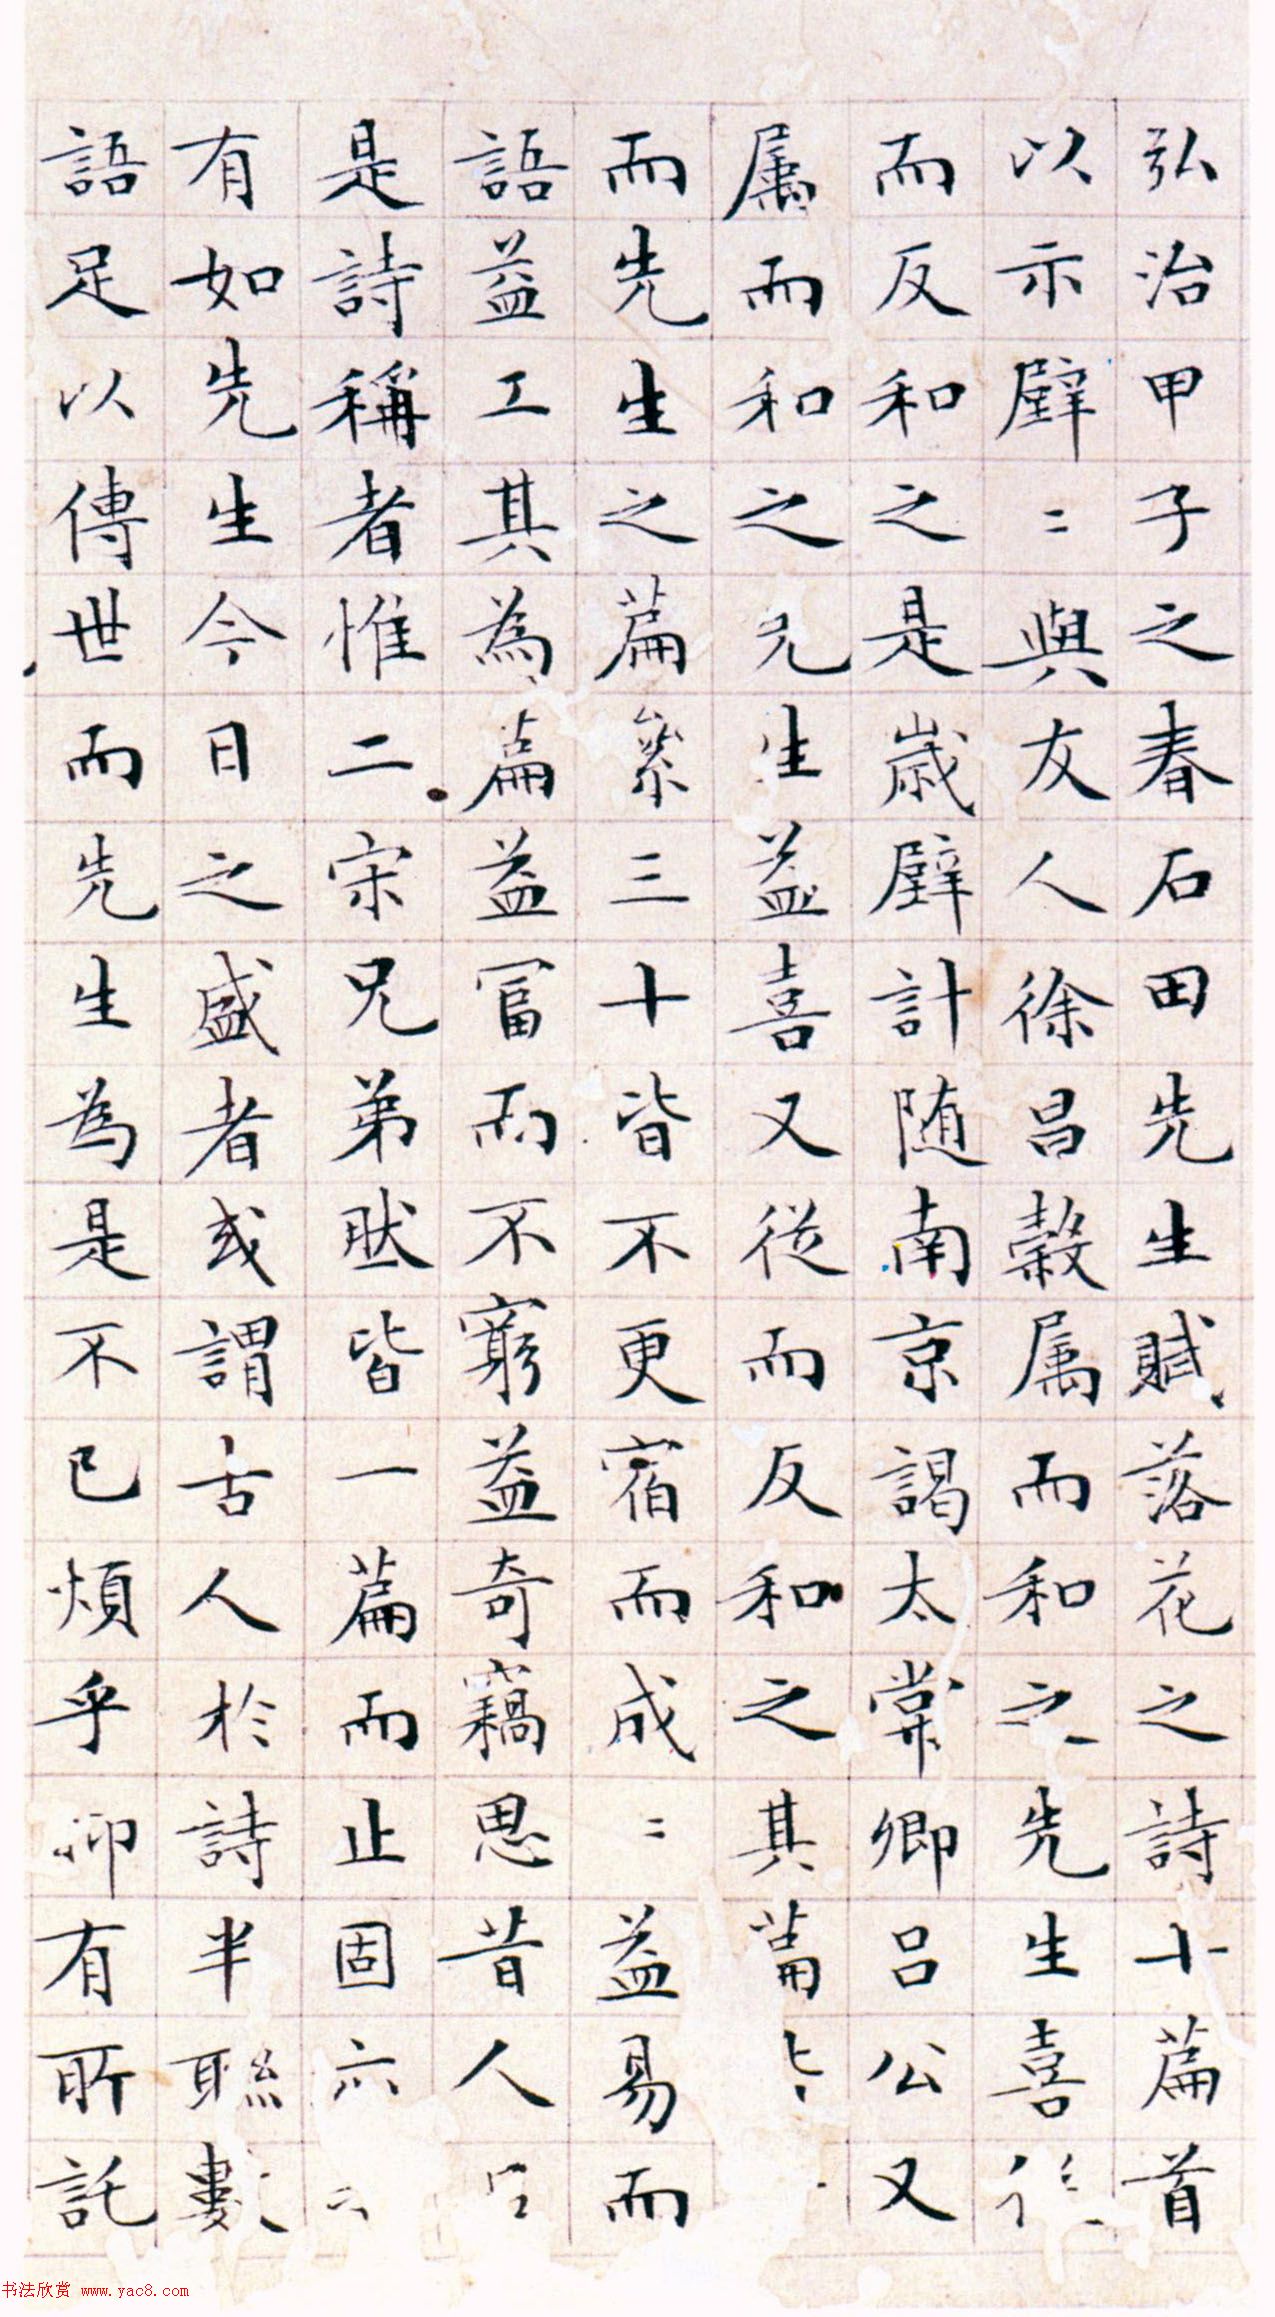 弘治甲子之春石田先生賦落花之詩十篇首
以示璧〻與友人徐昌穀属而和之先生喜從
而反和之是歲璧計随南京謁太常卿吕公又
属而和之先生益喜又從而反和之其篇
而先生之篇累三十皆不更宿而成〻益易而
語益工其為篇益富而不窮益奇竊思昔人
是詩稱者惟二宋兄弟然皆一篇而止固六
有如先生今日之盛者或謂古人於詩半聯數
語足以傳世而先生為是不已煩乎抑有所託
书法欣赏 www.yac8.com